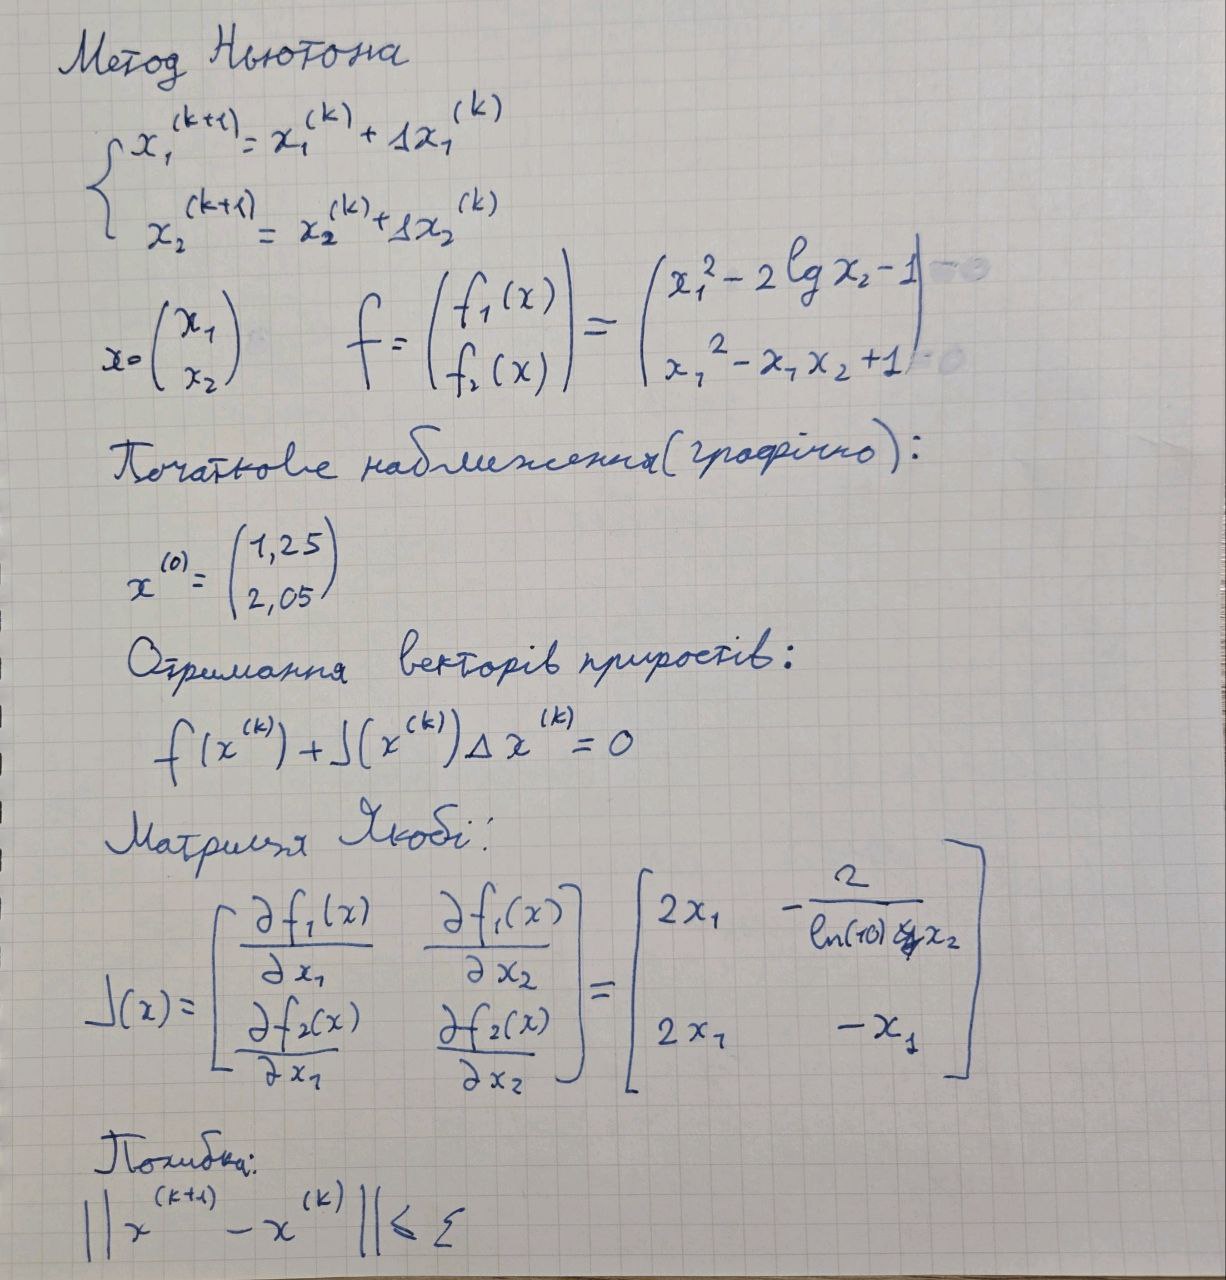 Метод Ньютона
{ x₁^(k+1) = x₁^(k) + Δx₁^(k)
x₂^(k+1) = x₂^(k) + Δx₂^(k)
x = (x₁ x₂) f = (f₁(x) f₂(x)) = (x₁² - 2 lg x₂ - 1 x₁² - x₁x₂ + 1)
Початкове наближення (графічно):
x^(0) = (1,25 2,05)
Отримання векторів приростів:
f(x^(k)) + J(x^(k)) Δx^(k) = 0
Матриця Якобі:
J(x) = [∂f₁(x)/∂x₁ ∂f₁(x)/∂x₂ ∂f₂(x)/∂x₁ ∂f₂(x)/∂x₂] = [2x₁ -2/(ln(10) x₂) 2x₁ -x₁]
Похибка:
||x^(k+1) - x^(k)|| ≤ Σ